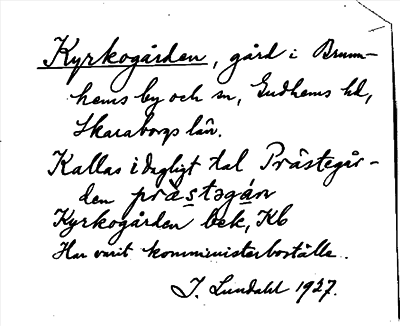 Kyrkogården, gård i Brunn-
hems by och sn, Gudhems hd,
Skaraborgs län.
Kallas i dagligt tal Prästegår-
den prästəgán
Kyrkogården bek, Kb
Har varit komministerboställe.
J. Lundahl 1927.